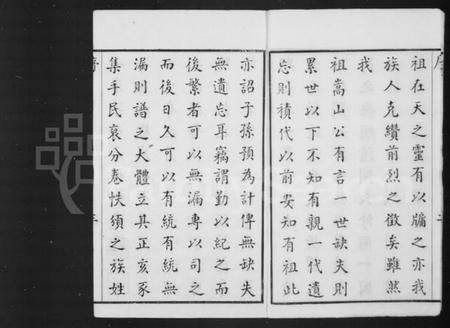 祖在天之靈有以牖之亦我
族人克纘前烈之徵矣雖然
我
祖嵩山公有言一世缺失則
累世以下不知有親一代遺
忘則積代以前安知有祖此
亦詔子孫預為計俾無缺失
無遺忘耳竊謂勤以紀之而
後繁者可以無漏專以司之
而後日久可以有統有統無
漏則譜之大體立具正亥豕
集手民裒分卷帙須之族姓
序